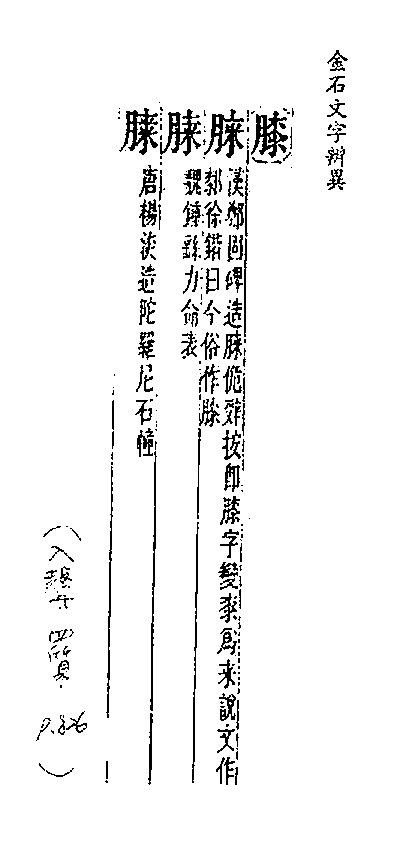 金石文字辨異
膝
䐚 漢鄭固碑造膝佹辭按即膝字變桼爲来說文作
厀徐鍇曰今俗作膝
魏鍾繇力命表
唐楊淡造陀羅尼石幢
(入聲 四質.
P.826)